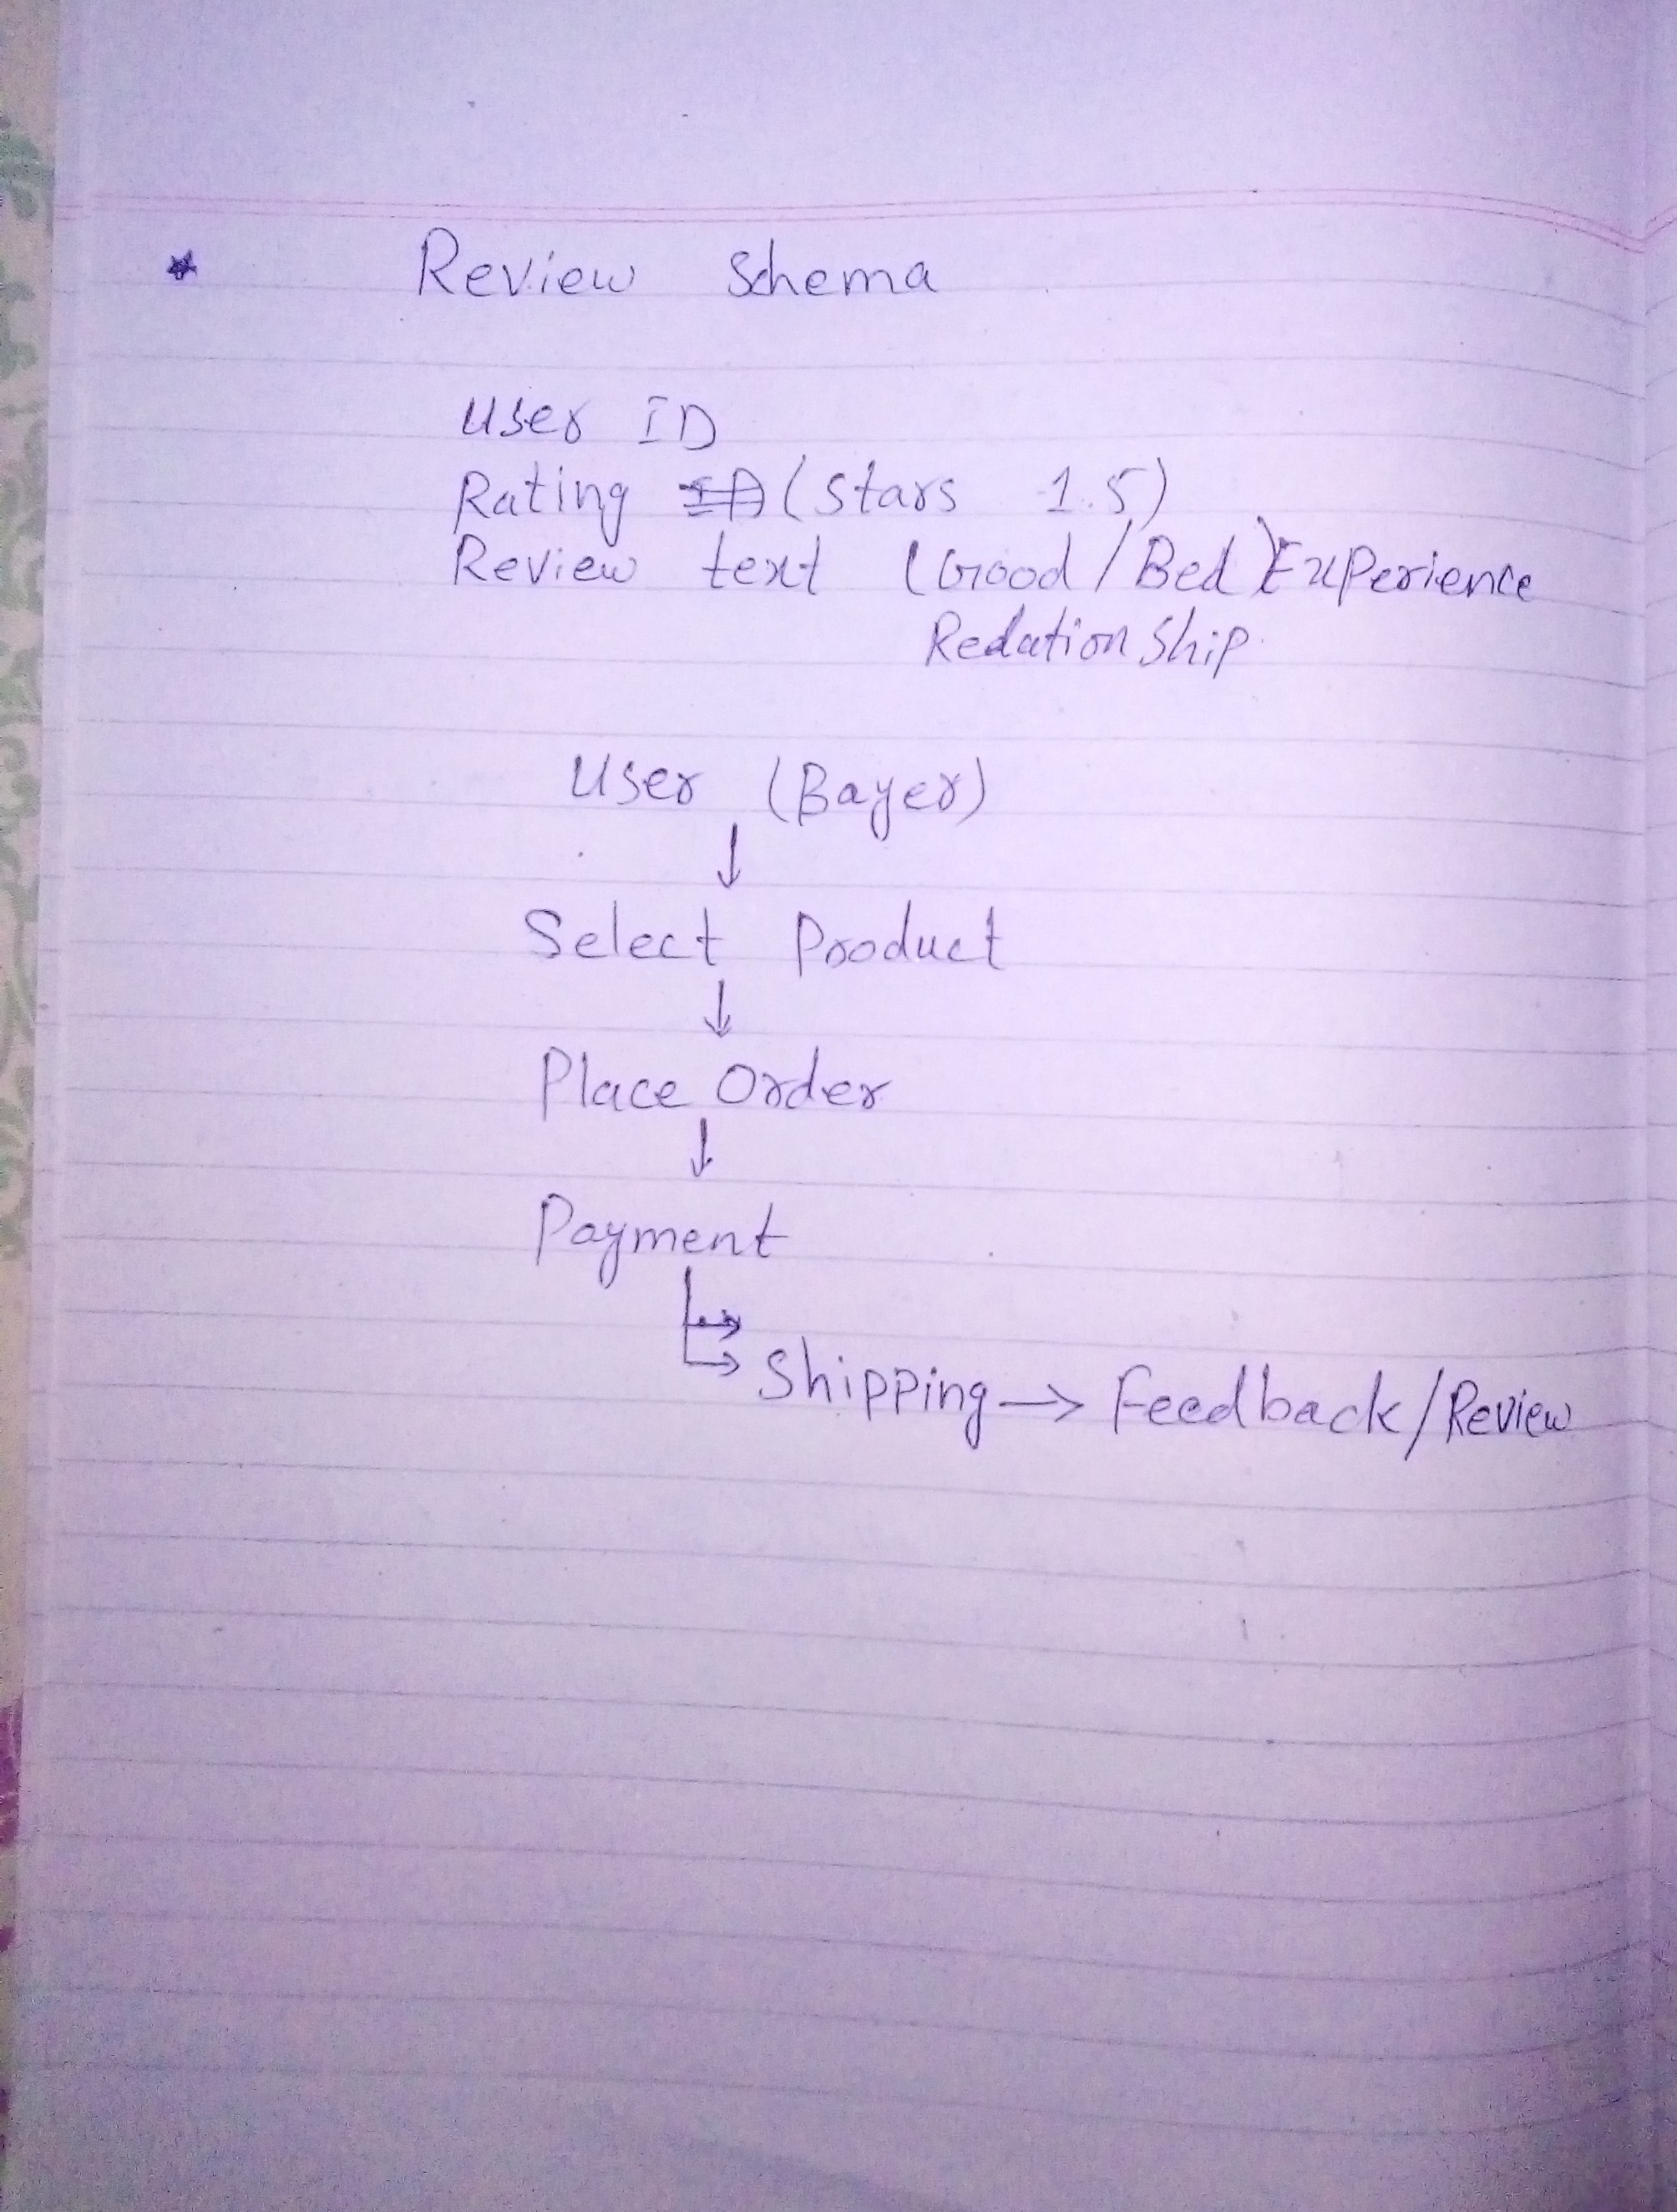 * Review Schema
User ID
Rating (Stars 1.5)
Review text (Good/Bed) Experience
RedationShip
User (Bayer)
↓
Select Product
↓
Place Order
↓
Payment
Shipping → Feedback/Review